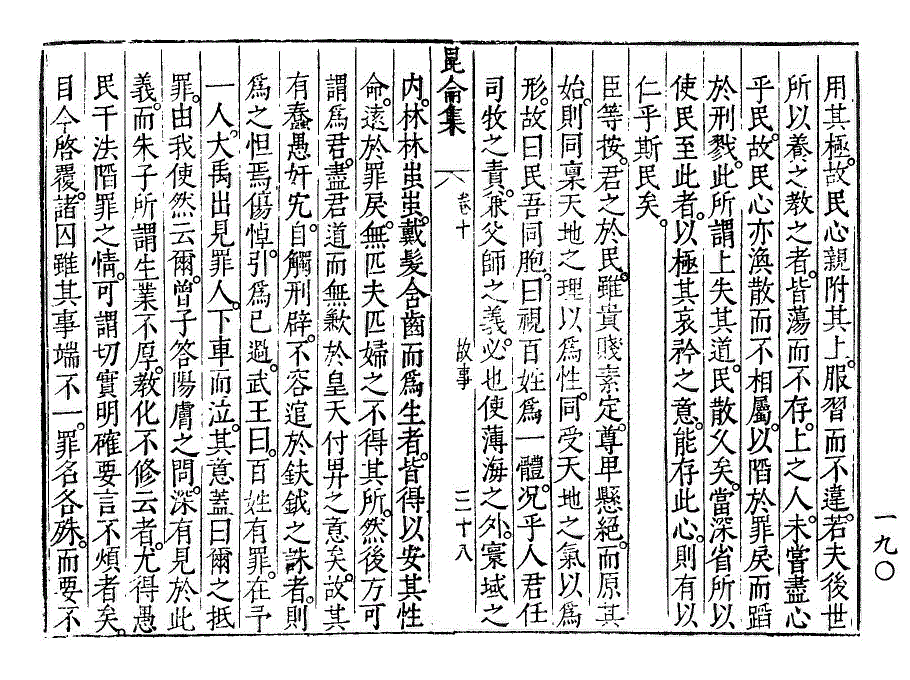 用其極。故民心親附其上。服習而不違。若夫後世
所以養之教之者。皆蕩而不存。上之人。未嘗盡心
乎民。故民心亦渙散而不相屬。以陷於罪戾而蹈
於刑戮。此所謂上失其道。民散久矣。當深省所以
使民至此者。以極其哀矜之意。能存此心。則有以
仁乎斯民矣。
臣等按。君之於民。雖貴賤素定。尊卑懸絕。而原其
始。則同稟天地之理以爲性。同受天地之氣以爲
形。故曰民吾同胞。曰視百姓爲一體。况乎人君任
司牧之責。兼父師之義。必也使薄海之外。寰域之
昆侖集
卷十
故事
二十八
內。林林蚩蚩。戴髮含齒而爲生者。皆得以安其性
命。遠於罪戾。無匹夫匹婦之不得其所。然後方可
謂爲君。盡君道而無歉於皇天付畀之意矣。故其
有蠢愚奸宄。自觸刑辟。不容逭於鈇鉞之誅者。則
爲之怛焉傷悼。引爲已過。武王曰。百姓有罪。在予
一人。大禹出見罪人。下車而泣。其意蓋曰爾之抵
罪。由我使然云爾。曾子答陽膚之問。深有見於此
義。而朱子所謂生業不厚。教化不修云者。尤得愚
民干法陷罪之情。可謂切實明確。要言不煩者矣。
目今啓覆。諸囚雖其事端不一。罪名各殊。而要不
一九〇